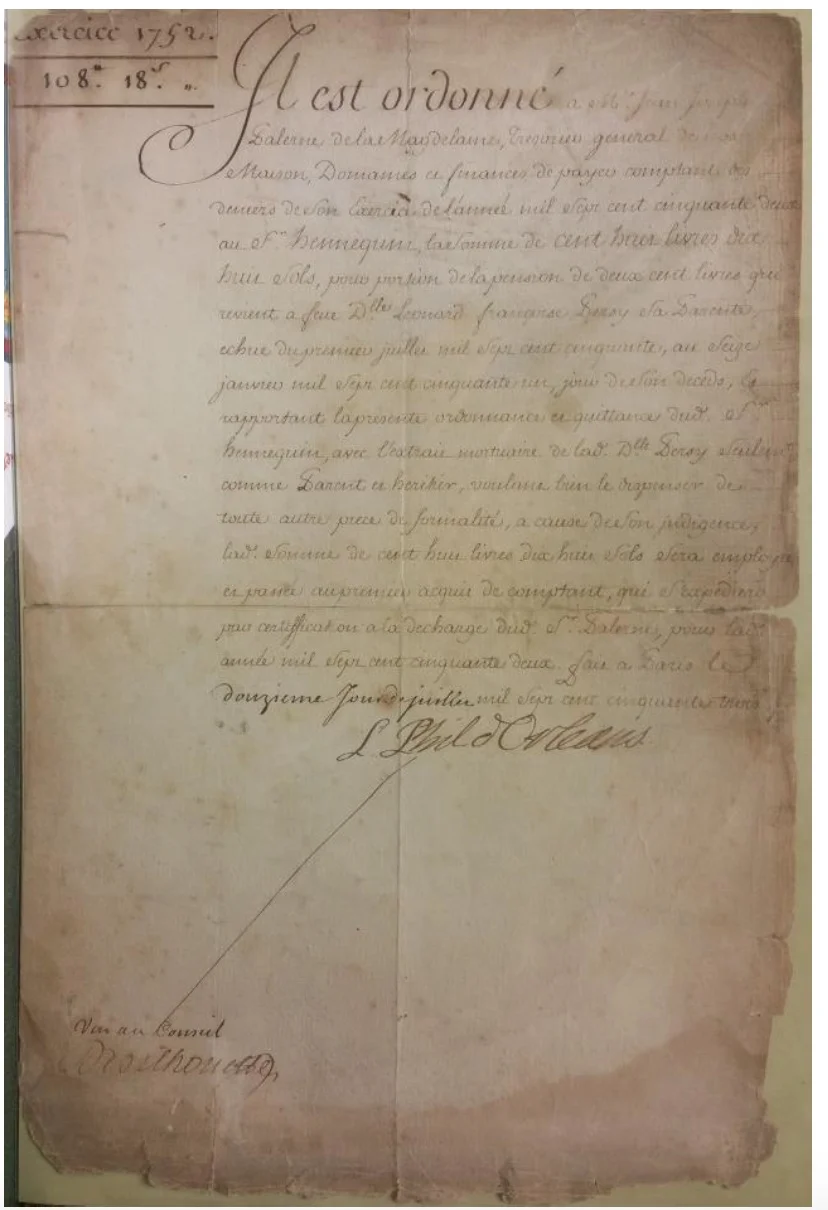 Exercice 1752.
108.# 18.s ".
Il est ordonné a Mr. Jean Joseph
Palerne de la Magdelaine, Tresorier general de nos
Maison, Domaines et finances de payer comptant des
deniers de son Exercice de l'année mil sept cent cinquante deux
au Sr. hennequin, la somme de cent huit livres dix
huit sols, pour portion de la pension de deux cent livres qui
revient a feue Dlle Leonard françoise Persy sa Parente,
echue du premier juillet mil sept cent cinquante, au seize
janvier mil sept cent cinquante un, jour de son decéds, Et
rapportant la presente ordonnance et quittance dud. Sr.
hennequin, avec l'extrait mortuaire de lad. Dlle Persy seulemt.
comme Parent et heritier, voulant bien le dispenser de
toute autre piece de formalité, a cause de son indigence,
lad. somme de cent huit livres dix huit sols sera employée
et passée au premier acquit de comptant, qui s'expediera
par certification a la decharge dud. Sr. Palerne, pour lad.
année mil sept cent cinquante deux. fait a Paris le
douzieme Jour de juillet mil sept cent cinquante trois
L Phil d'Orleans
Vu au Conseil